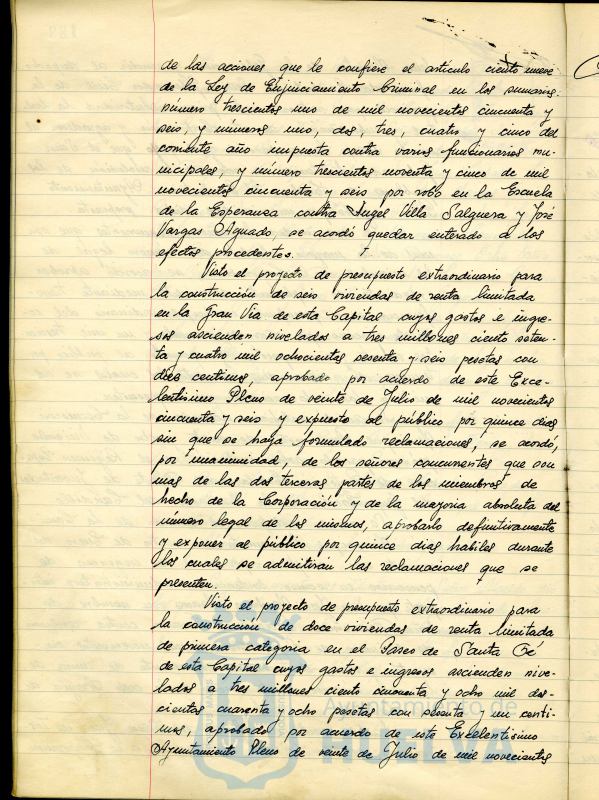 de las acciones que le confiere el artículo ciento nueve
de la Ley de Enjuiciamiento Criminal en los sumarios
número trescientos uno de mil novecientos cincuenta y
seis, y números uno, dos, tres, cuatro y cinco del
corriente año impuesta contra varios funcionarios mu-
nicipales, y número trescientos noventa y cinco de mil
novecientos cincuenta y seis, por robo en la Escuela
de la Esperanza contra Angel Villa Salguera y José
Vargas Aguado se acordó quedar enterado a los
efectos procedentes.
Visto el proyecto de presupuesto extraordinario para
la construcción de seis viviendas de renta limitada
en la Gran Via de esta Capital cuyos gastos e ingre-
sos ascienden nivelados a tres millones ciento seten-
ta y cuatro mil ochocientas sesenta y seis pesetas con
doce centimos, aprobado por acuerdo de este Exce-
lentisimo Pleno de veinte de Julio de mil novecientos
cincuenta y seis y expuesto al público por quince dias
sin que se haya formulado reclamaciones, se acordó,
por unanimidad, de los señores concurrentes que son
mas de las dos terceras partes de los miembros de
hecho de la Corporación y de la mayoria absoluta del
número legal de los mismos, aprobarlo definitivamente
y exponer al público por quince dias habiles durante
los cuales se admitirán las reclamaciones que se
presenten.
Visto el proyecto de presupuesto extraordinario para
la construcción de doce viviendas de renta limitada
de primera categoria en el Paseo de Santa Fé
de esta Capital cuyos gastos e ingresos ascienden nive-
lados a tres millones ciento cincuenta y ocho mil dos-
cientas cuarenta y ocho pesetas con sesenta y un centi-
mos, aprobado por acuerdo de este Excelentisimo
Ayuntamiento Pleno de veinte de Julio de mil novecientos
Ayuntamiento de
HUELVA